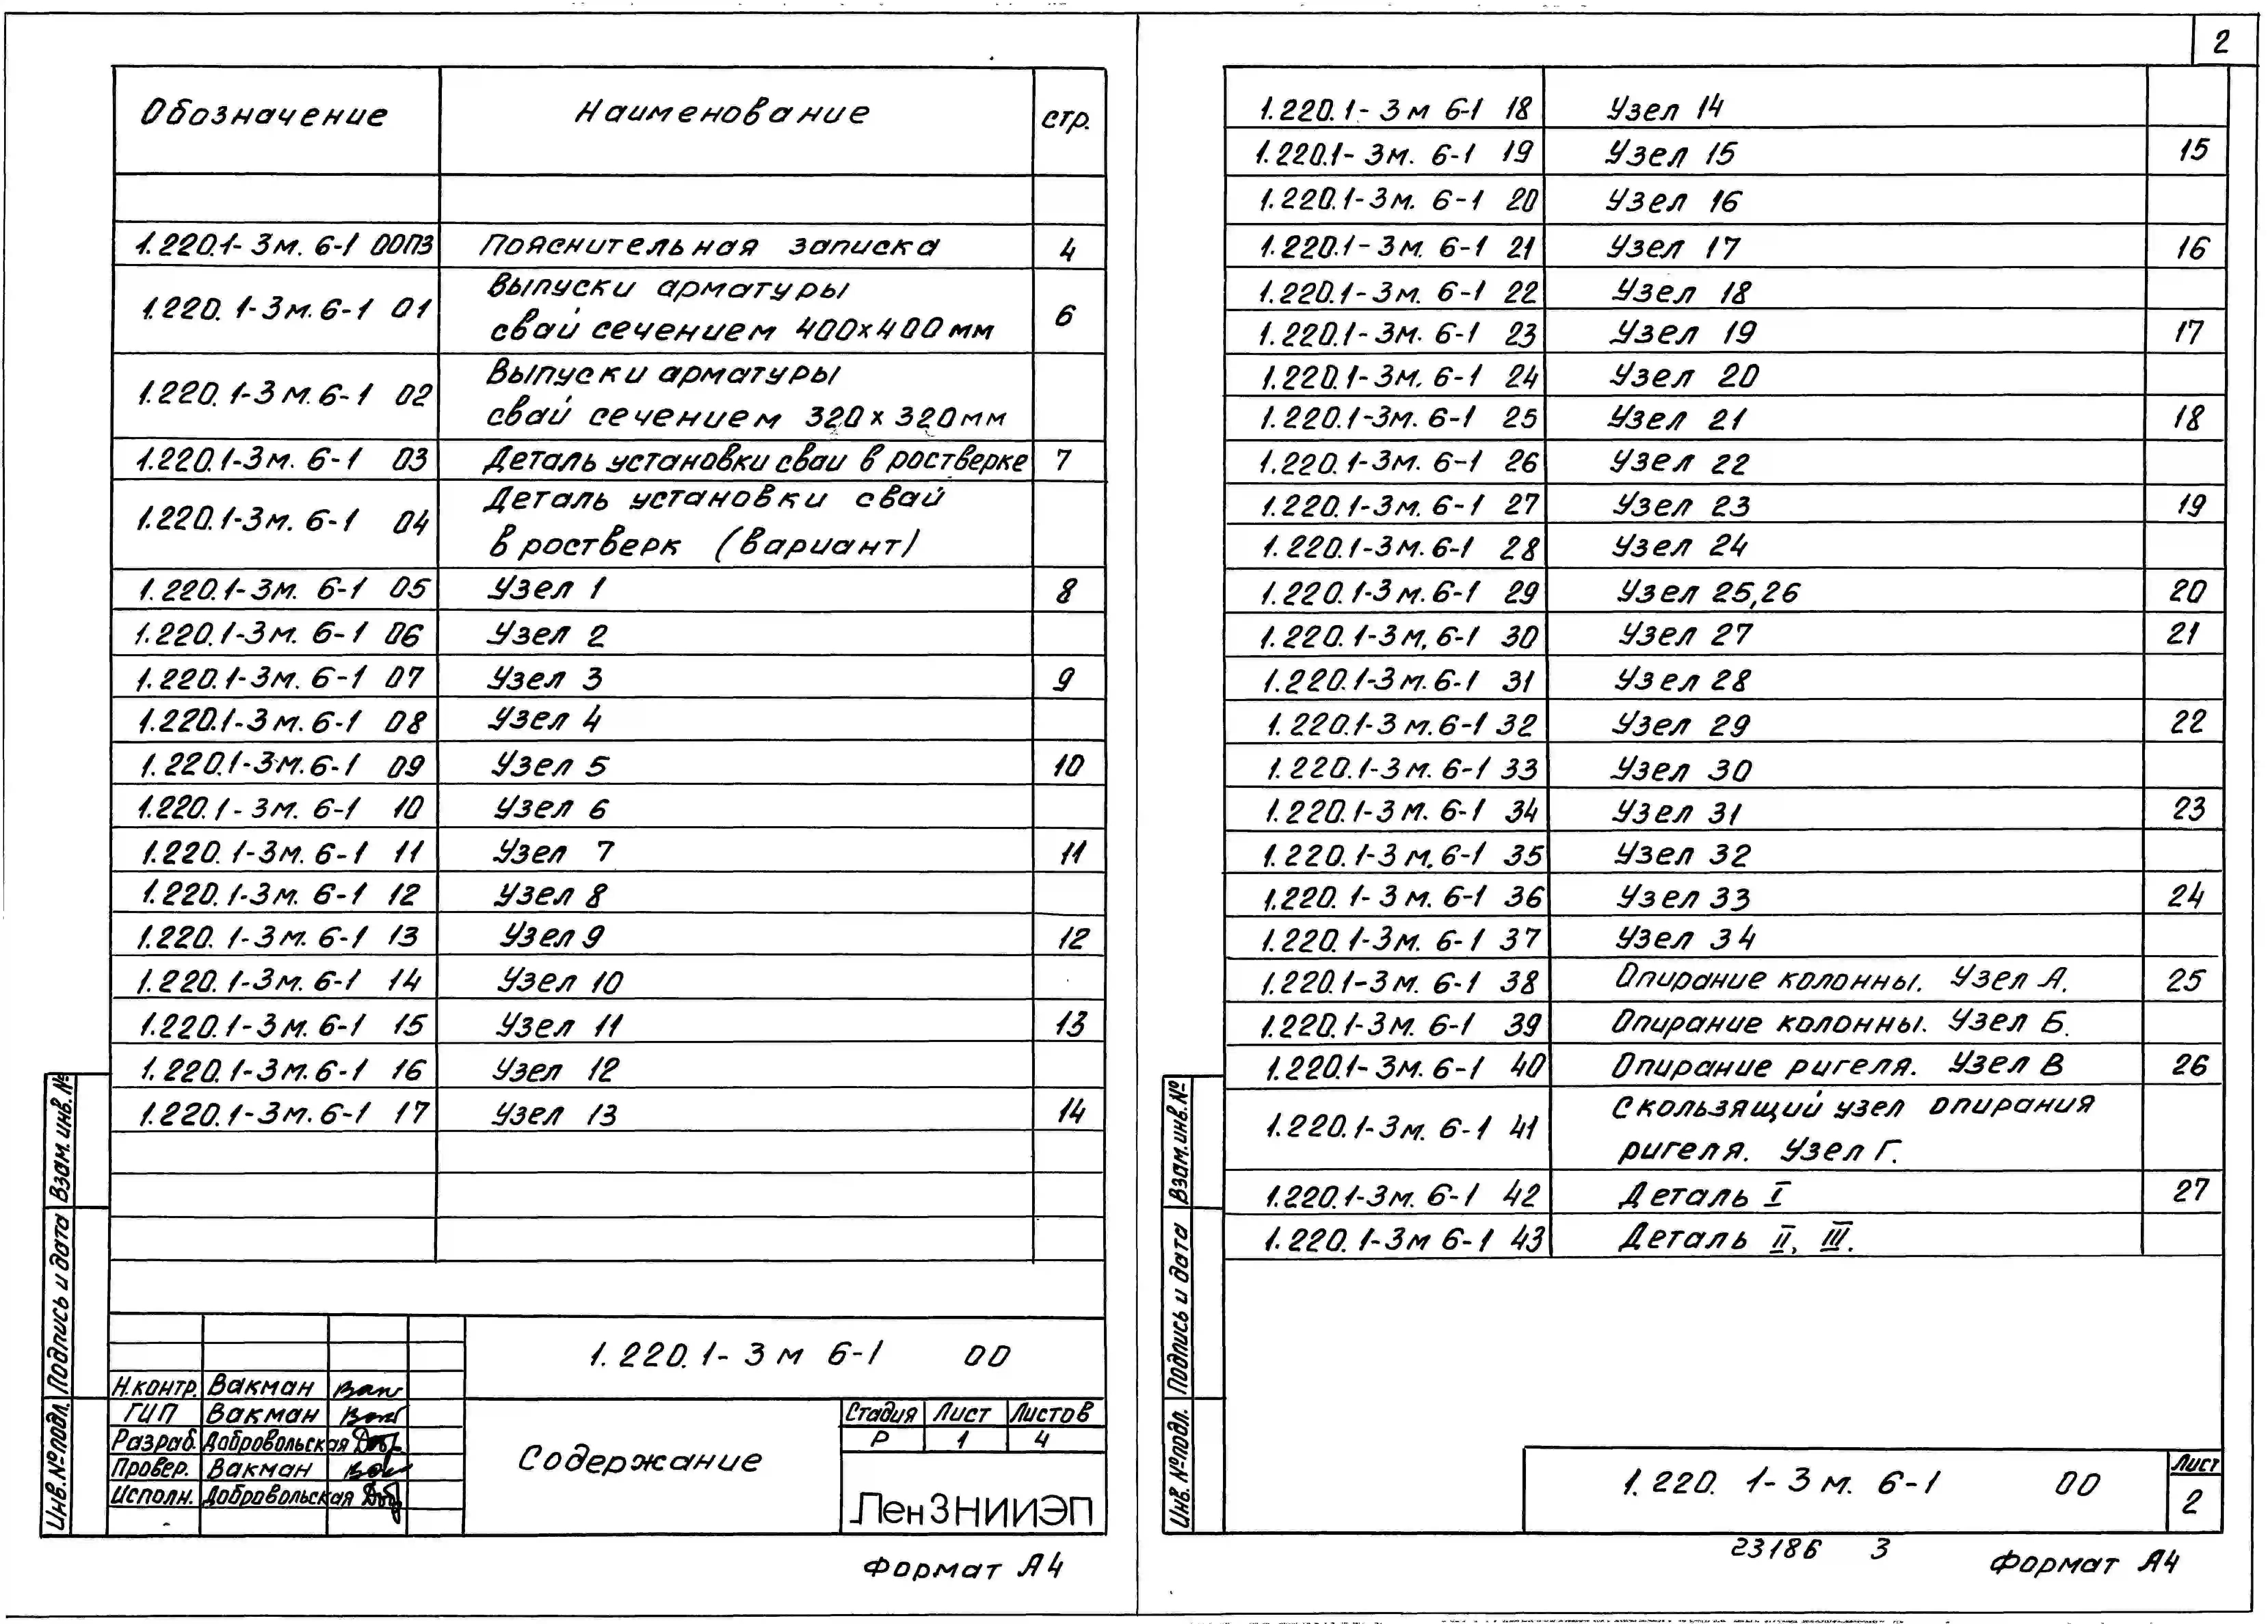 Обозначение Наименование стр.
1.220.1-3м. 6-1 00ПЗ Пояснительная записка 4
1.220.1-3м.6-1 01 Выпуски арматуры
свай сечением 400х400мм 6
1.220.1-3м.6-1 02 Выпуски арматуры
свай сечением 320х320мм
1.220.1-3м. 6-1 03 Деталь установки сваи в ростверке 7
1.220.1-3м. 6-1 04 Деталь установки свай
в ростверк (вариант)
1.220.1-3м. 6-1 05 Узел 1 8
1.220.1-3м. 6-1 06 Узел 2
1.220.1-3м. 6-1 07 Узел 3 9
1.220.1-3м.6-1 08 Узел 4
1.220.1-3м.6-1 09 Узел 5 10
1.220.1-3м. 6-1 10 Узел 6
1.220.1-3м. 6-1 11 Узел 7 11
1.220.1-3м. 6-1 12 Узел 8
1.220.1-3м. 6-1 13 Узел 9 12
1.220.1-3м. 6-1 14 Узел 10
1.220.1-3м. 6-1 15 Узел 11 13
1.220.1-3м.6-1 16 Узел 12
1.220.1-3м.6-1 17 Узел 13 14
1.220.1-3м 6-1 00
Н.контр. Вакман
ГИП Вакман
Разраб. Добровольская
Провер. Вакман
Исполн. Добровольская
Содержание
Стадия Лист Листов
Р 1 4
ЛенЗНИИЭП
Формат А4
Взам.инв.№
Подпись и дата
Инв.№подл.
2
1.220.1-3м 6-1 18 Узел 14
1.220.1-3м. 6-1 19 Узел 15 15
1.220.1-3м. 6-1 20 Узел 16
1.220.1-3м. 6-1 21 Узел 17 16
1.220.1-3м. 6-1 22 Узел 18
1.220.1-3м. 6-1 23 Узел 19 17
1.220.1-3м. 6-1 24 Узел 20
1.220.1-3м. 6-1 25 Узел 21 18
1.220.1-3м. 6-1 26 Узел 22
1.220.1-3м. 6-1 27 Узел 23 19
1.220.1-3м.6-1 28 Узел 24
1.220.1-3м.6-1 29 Узел 25,26 20
1.220.1-3м.6-1 30 Узел 27 21
1.220.1-3м.6-1 31 Узел 28
1.220.1-3м.6-1 32 Узел 29 22
1.220.1-3м.6-1 33 Узел 30
1.220.1-3м.6-1 34 Узел 31 23
1.220.1-3м.6-1 35 Узел 32
1.220.1-3м.6-1 36 Узел 33 24
1.220.1-3м. 6-1 37 Узел 34
1.220.1-3м. 6-1 38 Опирание колонны. Узел А. 25
1.220.1-3м. 6-1 39 Опирание колонны. Узел Б.
1.220.1-3м.6-1 40 Опирание ригеля. Узел В 26
1.220.1-3м. 6-1 41 Скользящий узел опирания
ригеля. Узел Г.
1.220.1-3м. 6-1 42 Деталь I 27
1.220.1-3м 6-1 43 Деталь II, III.
Взам.инв.№
Подпись и дата
Инв.№подл.
1.220.1-3м. 6-1 00
Лист
2
23186 3
Формат А4